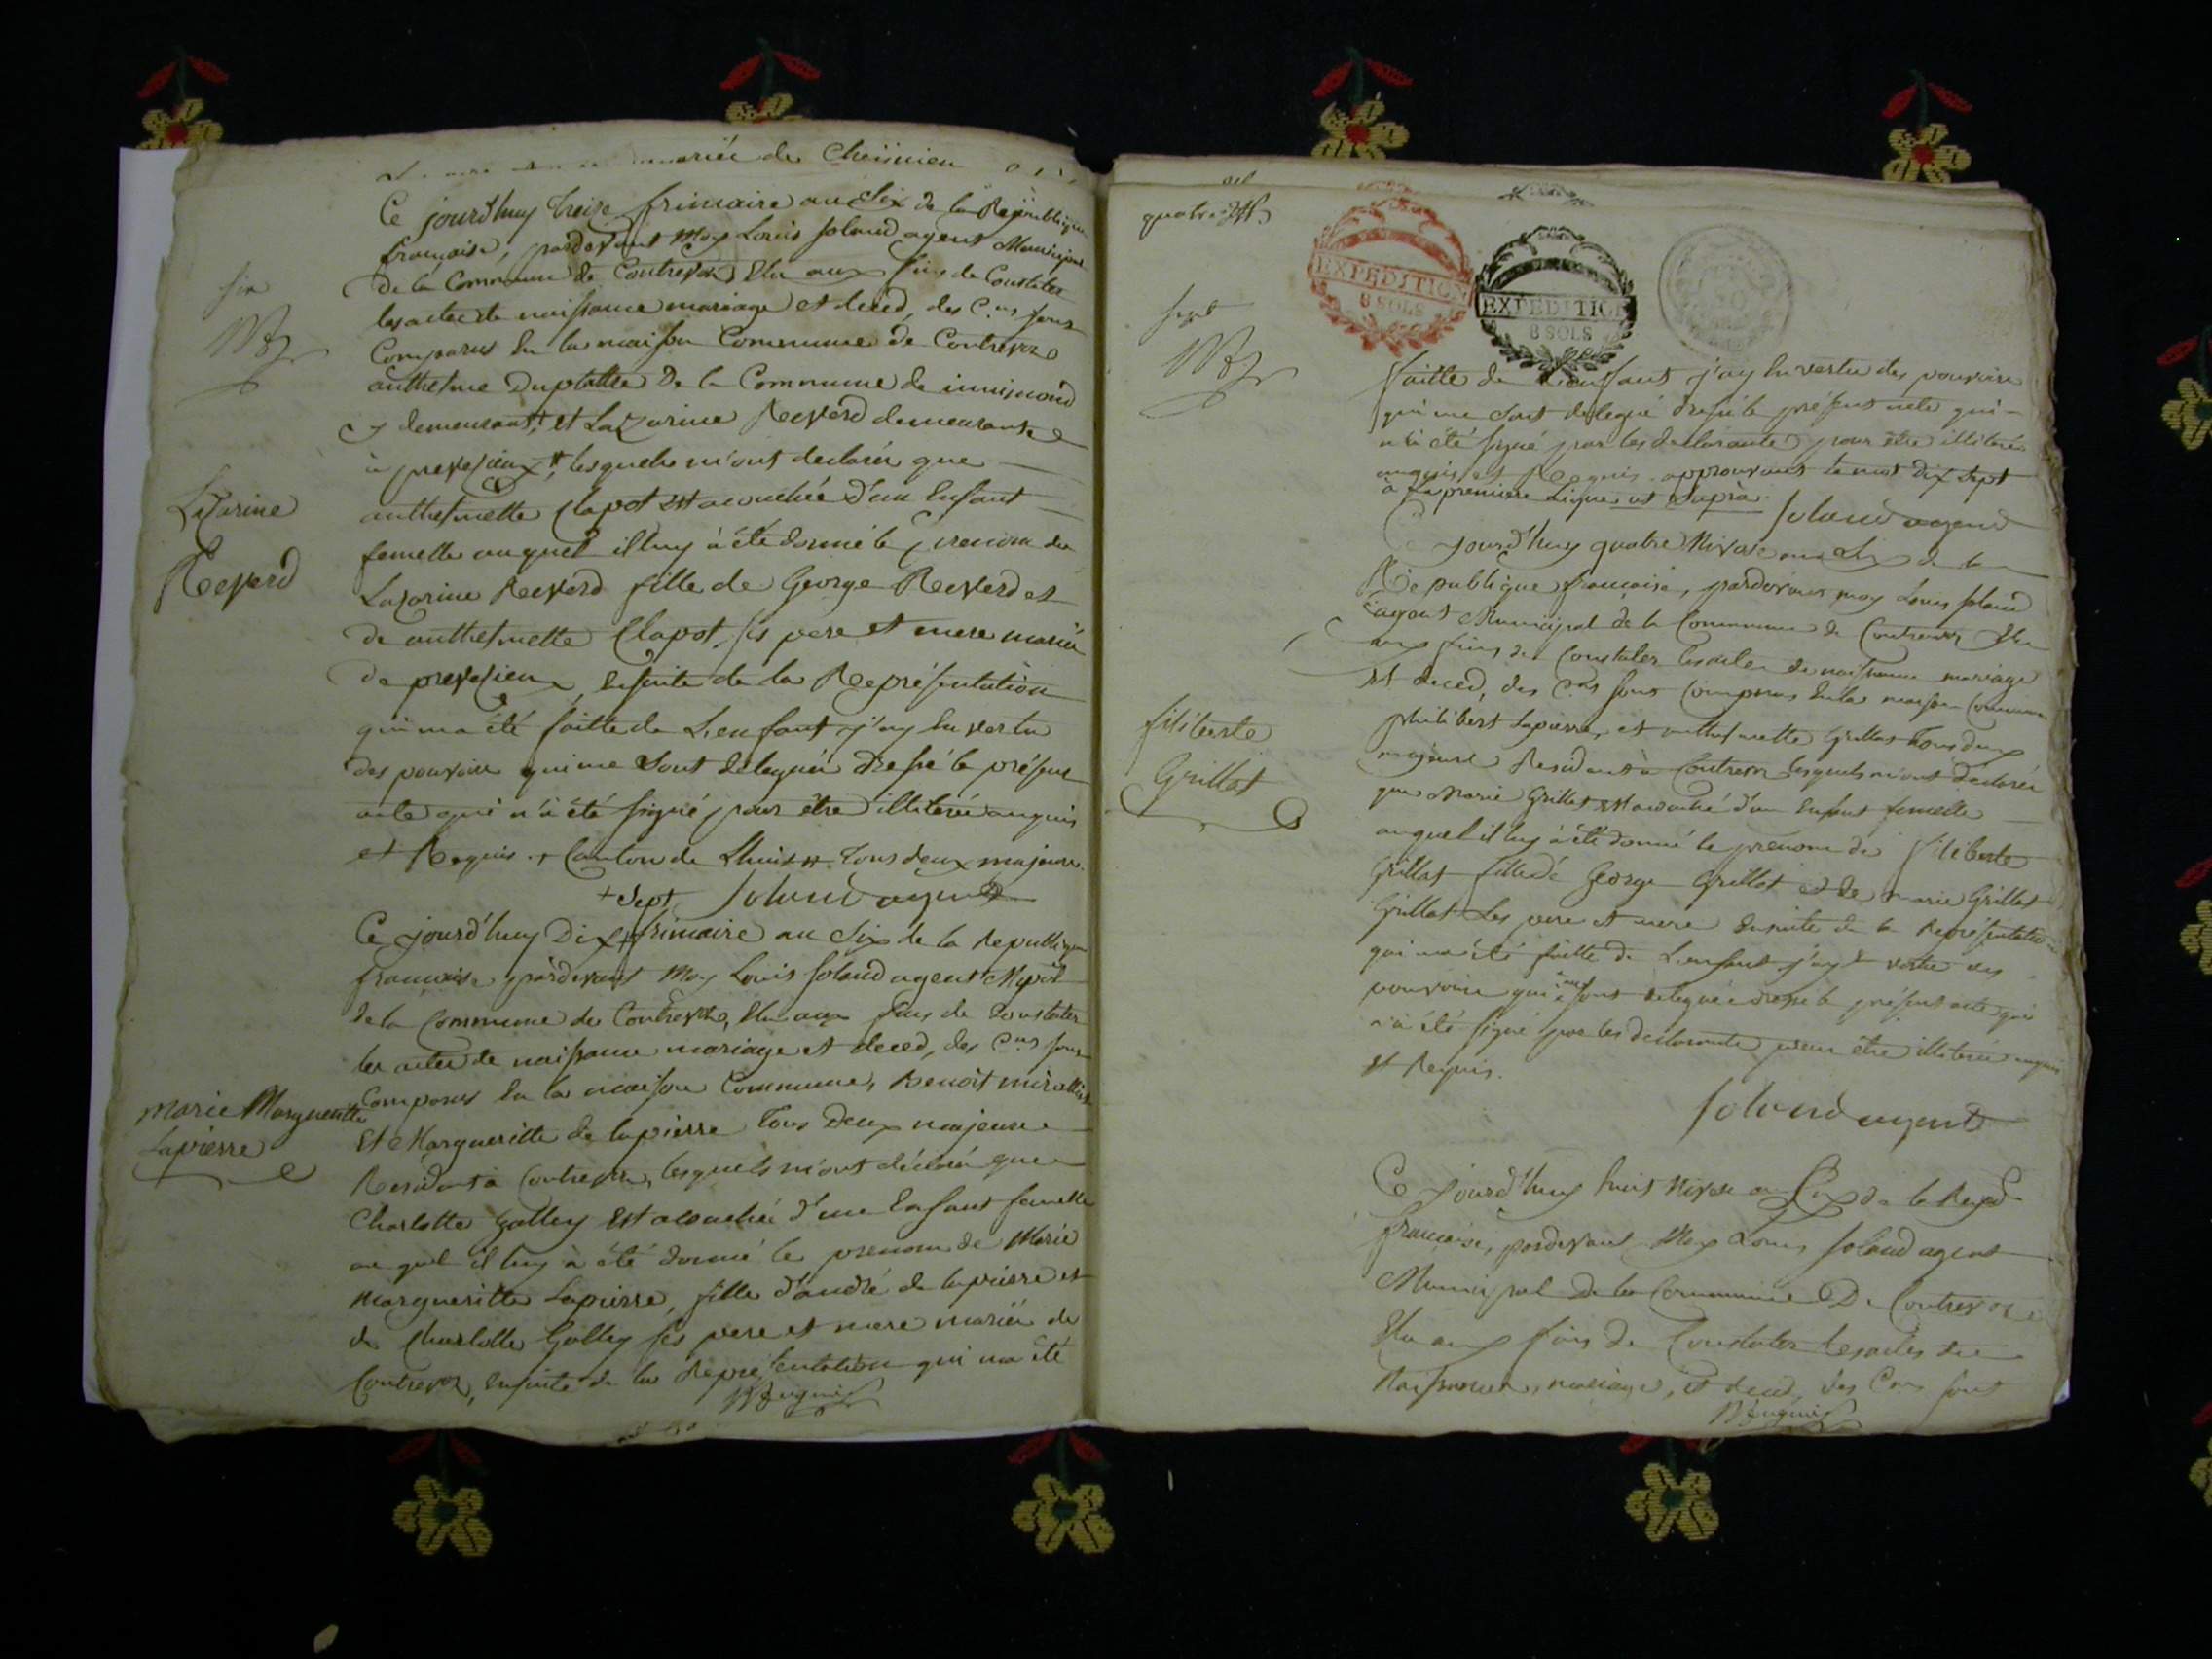 mariée de Cheinieu
Ce jourd'huy treize frimaire an Six de la Republique
francaise, pardevant Moy Louis Joland agent Municipal
de la Commune de Contrevoz Elu aux fins de Constater
les actes de naissance mariage et deced, des C.ens sont
six
Comparus En la maison Commune de Contrevoz
anthelme Duplattre De la Commune de innimond
y demeurant, + et Lazarine Reverd demeurante
à preveyzieux # lesquels m'ont declarée que
Lazarine
anthelmette Clapot est acouchée d'un Enfant
femelle auquel il luy à été donné le prenom de
Reverd
Lazarine Reverd fille de George Reverd et
de anthelmette Clapot, ses pere et mere mariée
de preveyzieux, Ensuite de la Représentation
qui ma été faitte de L'enfant j'ay En vertu
des pouvoirs qui me Sont deleguée dressé le présent
acte qui n'à été signé pour être illiterée anquis
et Requis. + Canton de Lhuis # tous deux majeure.
+ Sept Joland agent
Ce jourd'huy Dix + frimaire an Six de la Republique
francaise, pardevant Moy Louis Joland agent Mpal
de la Commune de Contrevoz, Elu aux fins de Constater
les actes de naissance mariage et deced, des C.ens sont
Comparus En la maison Commune, Benoit
marie Margueritte
Et Margueritte de lapierre tous Deux majeure
Lapierre
Residant à Contrevoz, lesquels m'ont déclaré que
Charlotte Galley Est acouchée d'une Enfant femelle
au quel il luy à été donné le prenom de Marie
Margueritte Lapierre, fille d'andré de lapierre et
de Charlotte Galley ses pere et mere mariée de
Contrevoz, Ensuite de la Représentation qui ma été
quatre
EXPEDITION
8 SOLS
EXPEDITION
8 SOLS
sept
faitte de L'enfant j'ay En vertu des pouvoirs
qui me Sont delegué dressé le présent acte qui
n'à été signé par les declarante pour être illiterée
anquis et Requis. approuvant le mot dix Sept
à La premiere Ligne ut Supra. Joland agent
Ce jourd'huy quatre Nivose an Six de la
Republique francaise, pardevant moy Louis Joland
agent Municipal de la Commune de Contrevoz Elu
aux fins de Constater les actes de naissance mariage
et deced, des C.ens sont Comparus En la maison Commune
filiberte
philibert Lapierre, et anthelmette Grillot tous deux
Grillot
majeure Residant à Contrevoz lesquels m'ont declarée
que Marie Grillot est acouchée d'un Enfant femelle
auquel il luy à été donné le prenom de filiberte
Grillot fille de George Grillot et de marie Grillot
Grillot Ses pere et mere Ensuite de la Représentation
qui ma été faitte de L'enfant j'ay En vertu des
pouvoirs qui me sont deleguée dressé le présent acte qui
n'à été signé par les declarante pour être illiterée anquis
et Requis.
Joland agent
Ce jourd'huy huit Nivose an Six de la Repub
francaise, pardevant Moy Louis Joland agent
Municipal de la Commune De Contrevoz
Elu aux fins de Constater les actes de
Naissance, mariage, et deced, des C.ens sont